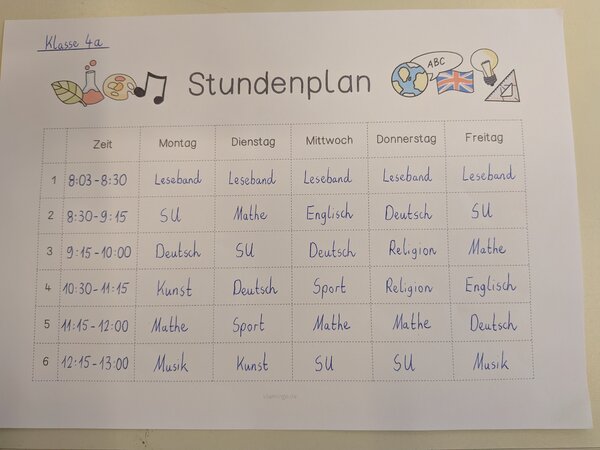 Klasse 4a
ABC
Stundenplan
Zeit Montag Dienstag Mittwoch Donnerstag Freitag
1 8:03-8:30 Leseband Leseband Leseband Leseband Leseband
2 8:30-9:15 SU Mathe Englisch Deutsch SU
3 9:15-10:00 Deutsch SU Deutsch Religion Mathe
4 10:30-11:15 Kunst Deutsch Sport Religion Englisch
5 11:15-12:00 Mathe Sport Mathe Mathe Deutsch
6 12:15-13:00 Musik Kunst SU SU Musik